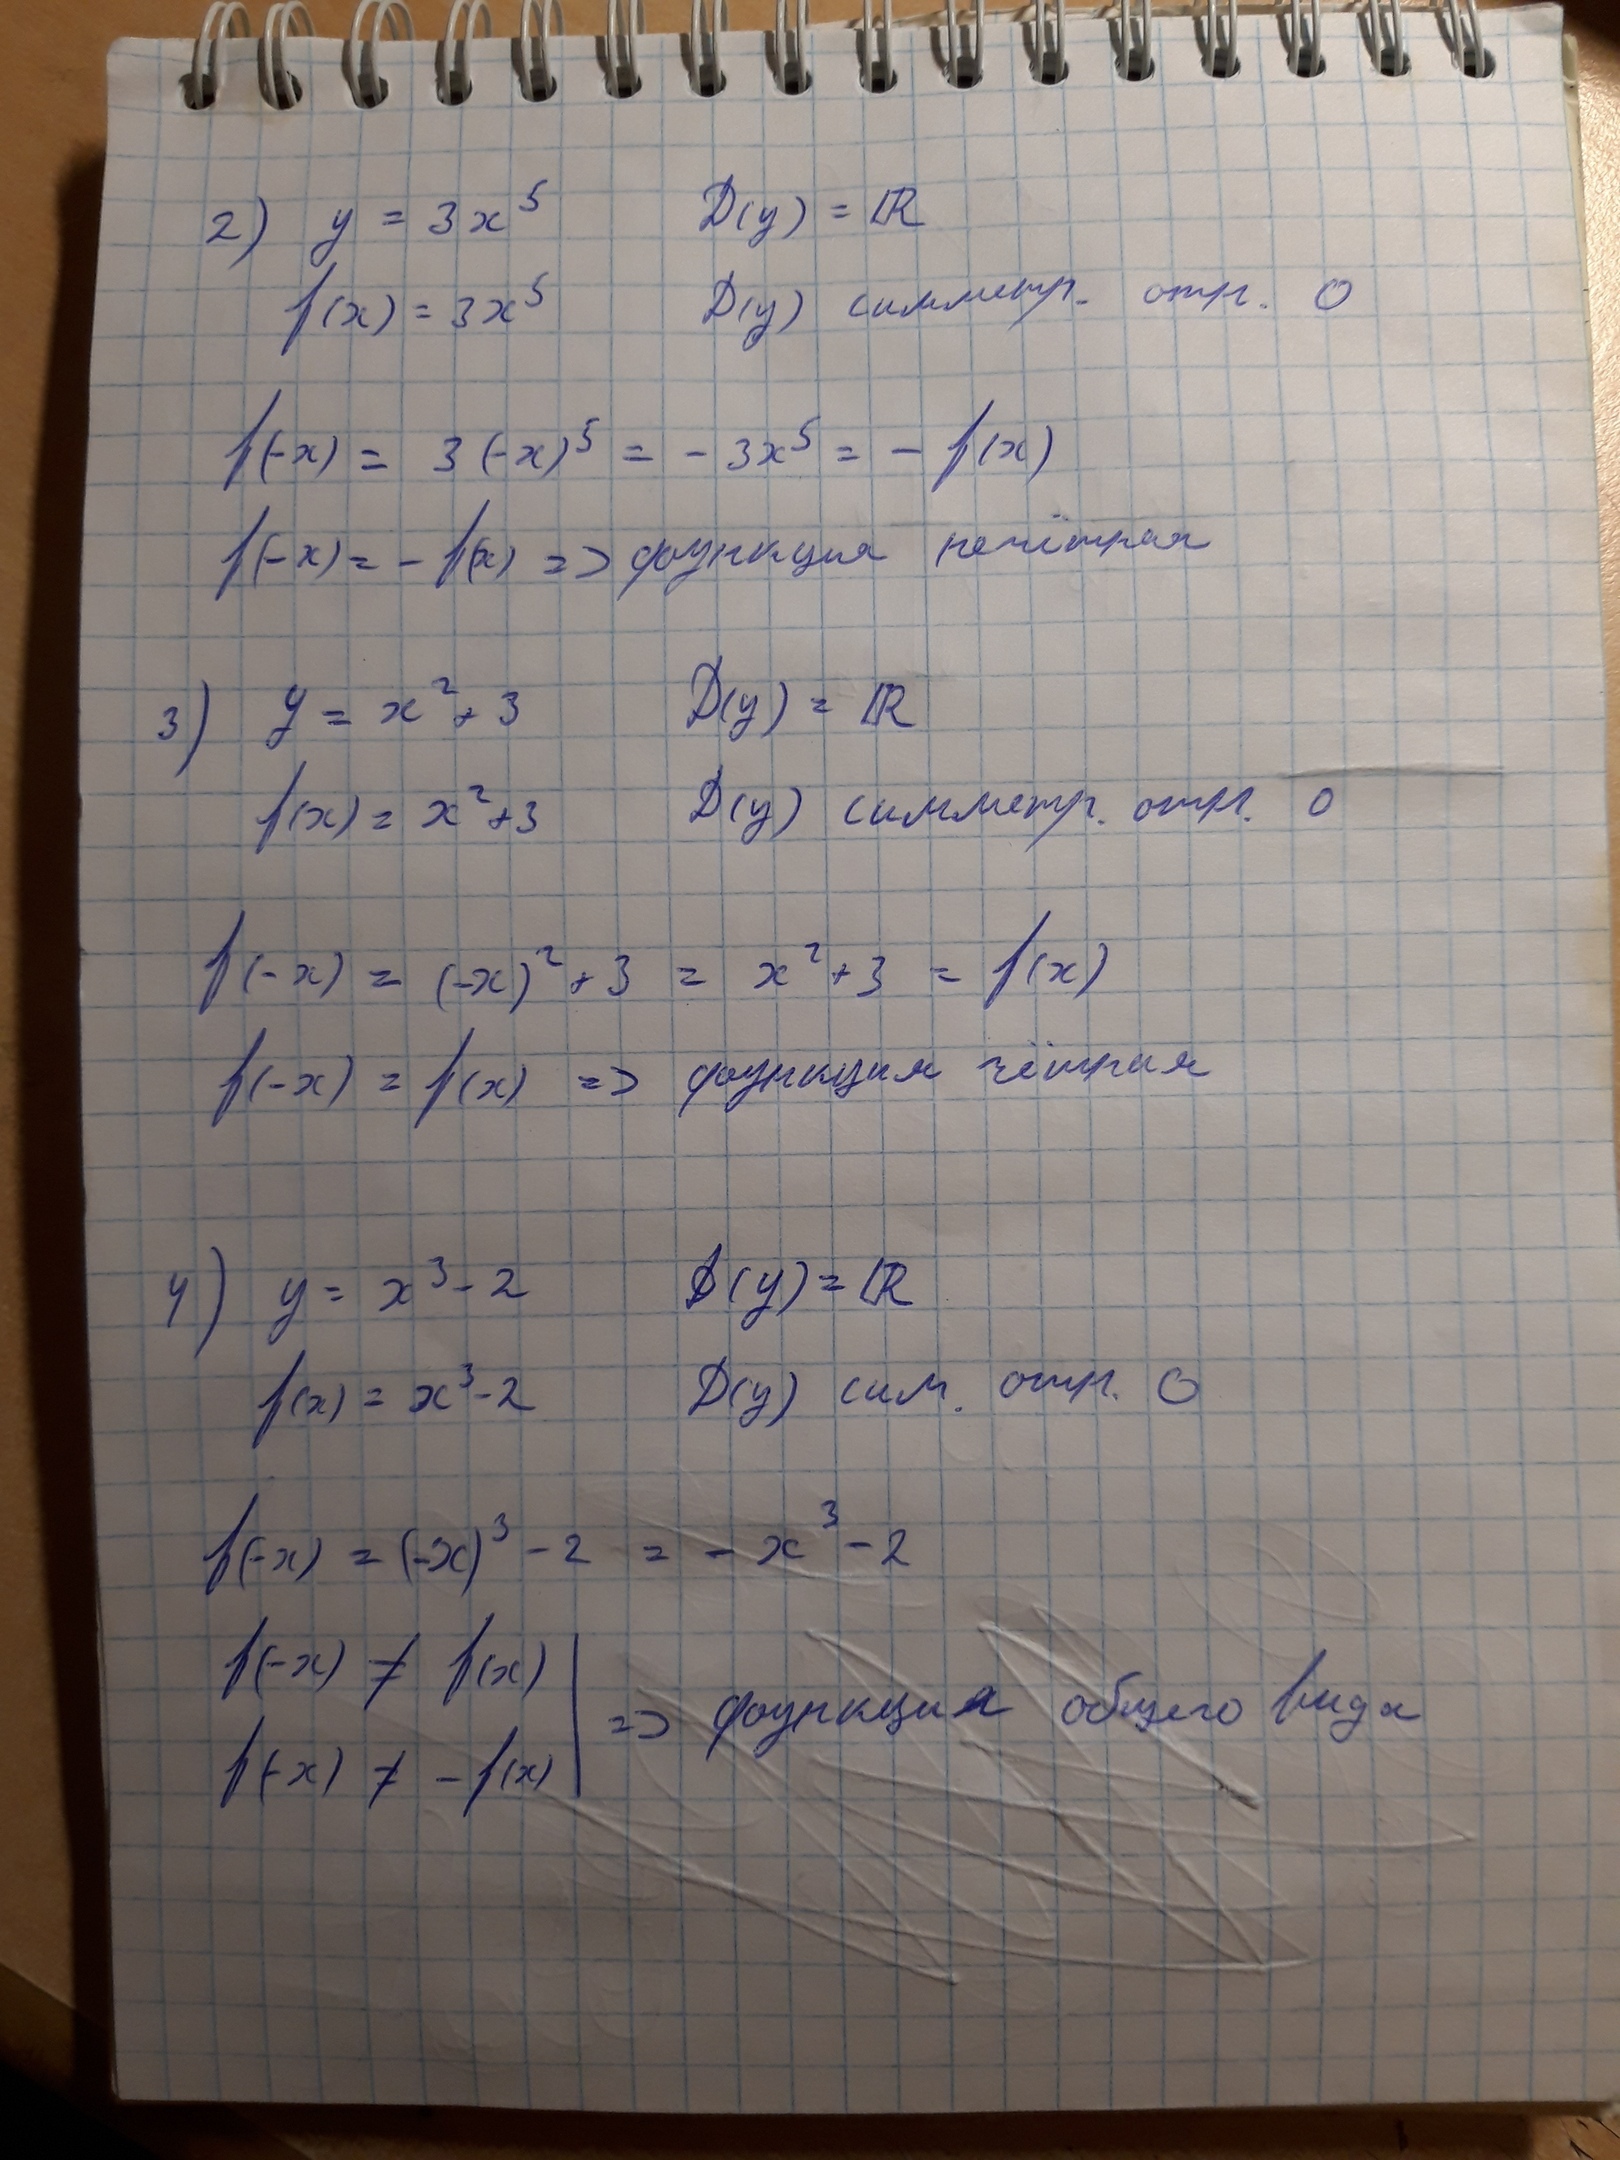 2) y = 3x⁵ D(y) = ℝ
f(x) = 3x⁵ D(y) симметр. отн. 0
f(-x) = 3(-x)⁵ = -3x⁵ = -f(x)
f(-x) = -f(x) => функция нечётная
3) y = x² + 3 D(y) = ℝ
f(x) = x² + 3 D(y) симметр. отн. 0
f(-x) = (-x)² + 3 = x² + 3 = f(x)
f(-x) = f(x) => функция чётная
4) y = x³ - 2 D(y) = ℝ
f(x) = x³ - 2 D(y) сим. отн. 0
f(-x) = (-x)³ - 2 = -x³ - 2
f(-x) ≠ f(x)
f(-x) ≠ -f(x) | => функция общего вида